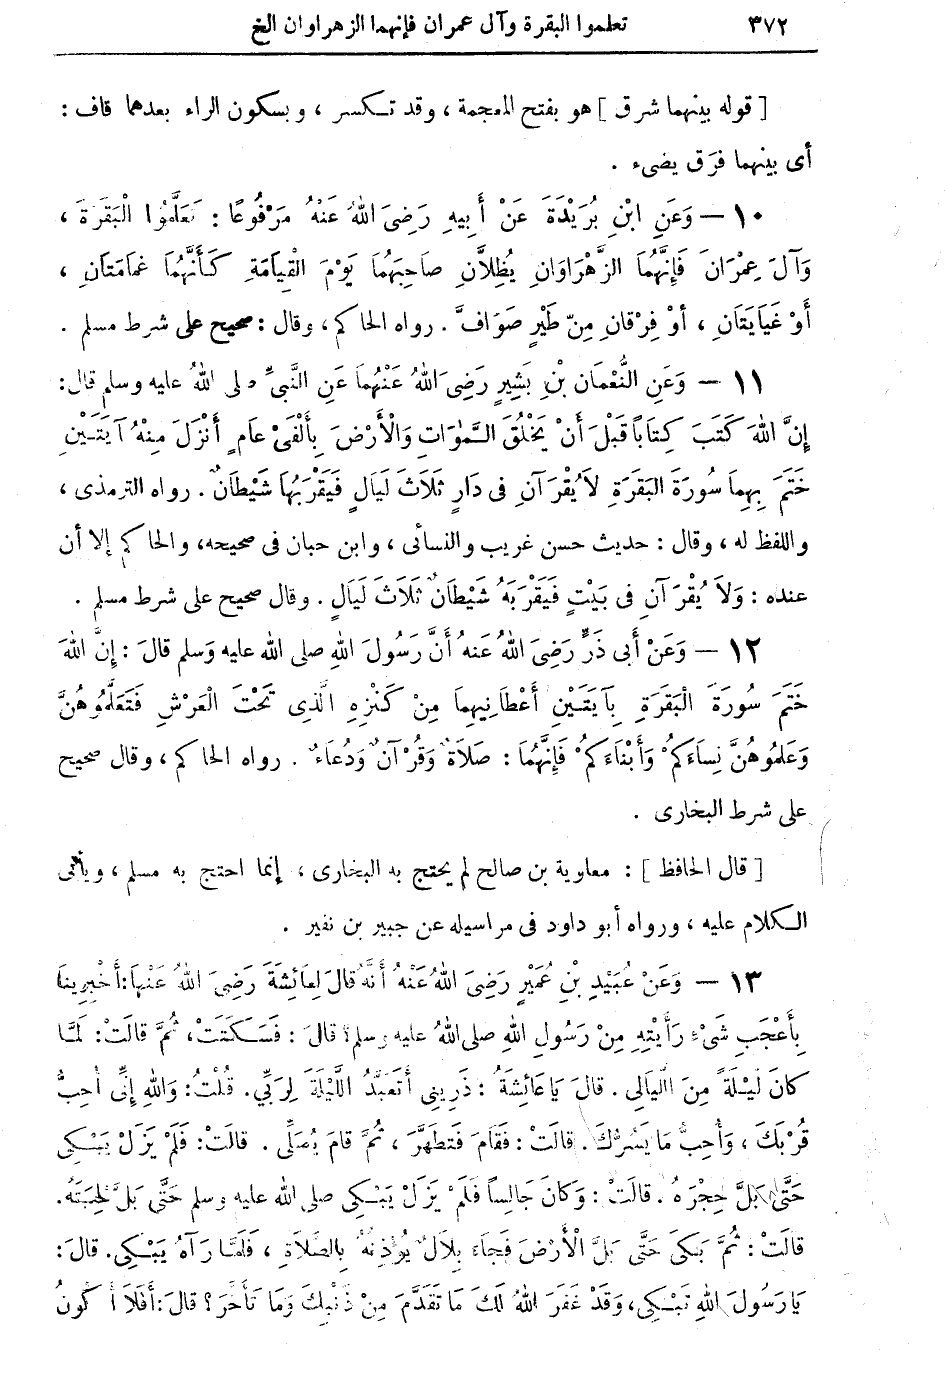 ٣٧٢ تعلموا البقرة وآل عمران فإنهما الزهراوان الخ
[ قوله بينهما شرق ] هو بفتح المعجمة ، وقد تكسر ، وبسكون الراء بعدهما قاف :
أى بينهما فرَق يضىء .
١٠ – وَعَنِ ابْنِ بُرَيْدَةَ عَنْ أَبِيهِ رَضِىَ اللهُ عَنْهُ مَرْفُوعًا : تَعَلَّمُوا الْبَقَرَةَ ،
وَآلَ عِمْرَانَ فَإِنَّهُمَا الزَّهْرَاوَانِ يُظِلاَّنِ صَاحِبَهُمَا يَوْمَ الْقِيَامَةِ كَأَنَّهُمَا غَمَامَتَانِ ،
أَوْ غَيَايَتَانِ ، أَوْ فِرْقَانِ مِنْ طَيْرٍ صَوَافَّ . رواه الحاكم ، وقال : صحيح على شرط مسلم .
١١ – وَعَنِ النُّعْمَانِ بْنِ بَشِيرٍ رَضِىَ اللهُ عَنْهُمَا عَنِ النَّبِىِّ صلى اللهُ عليه وسلم قال:
إِنَّ اللهَ كَتَبَ كِتَابًا قَبْلَ أَنْ يَخْلُقَ السَّمٰوَاتِ وَالْأَرْضَ بِأَلْفَىْ عَامٍ أَنْزَلَ مِنْهُ آيَتَيْنِ
خَتَمَ بِهِمَا سُورَةَ الْبَقَرَةِ لاَ يُقْرَآنِ فى دَارٍ ثَلاَثَ لَيَالٍ فَيَقْرَبُهَا شَيْطَانٌ . رواه الترمذى ،
واللفظ له ، وقال : حديث حسن غريب والنسائى ، وابن حبان فى صحيحه، والحاكم إلا أن
عنده : وَلاَ يُقْرَآنِ فى بَيْتٍ فَيَقْرَبَهُ شَيْطَانٌ ثَلاَثَ لَيَالٍ . وقال صحيح على شرط مسلم .
١٢ – وَعَنْ أَبى ذَرٍّ رَضِىَ اللهُ عَنهُ أَنَّ رَسُولَ اللهِ صلى الله عليه وَسلم قالَ : إِنَّ اللهَ
خَتَمَ سُورَةَ الْبَقَرَةِ بِآيَتَيْنِ أَعْطَانِيهِمَا مِنْ كَنْزِهِ الَّذِى تَحْتَ الْعَرْشِ فَتَعَلَّمُوهُنَّ
وَعَلِّمُوهُنَّ نِسَاءَكُمْ وَأَبْنَاءَكُمْ فَإِنَّهُمَا : صَلاَةٌ وَقُرْآنٌ وَدُعَاءٌ . رواه الحاكم ، وقال صحيح
على شرط البخارى .
[ قال الحافظ ] : معاوية بن صالح لم يحتج به البخارى ، إنما احتج به مسلم ، ويأتى
الكلام عليه ، ورواه أبو داود فى مراسيله عن جبير بن نفير .
١٣ – وَعَنْ عُبَيْدِ بْنِ عُمَيْرٍ رَضِىَ اللهُ عَنْهُ أَنَّهُ قَالَ لِعَائِشَةَ رَضِىَ اللهُ عَنْهَا: أَخْبِرِينَا
بِأَعْجَبِ شَىْءٍ رَأَيْتِهِ مِنْ رَسُولِ اللهِ صلى اللهُ عليه وسلم؟ قالَ : فَسَكَتَتْ، ثُمَّ قَالَتْ: لَمَّا
كانَ لَيْلَةً مِنَ اللَّيَالِى . قالَ يَا عَائِشَةُ : ذَرِينِى أَتَعَبَّدُ اللَّيْلَةَ لِرَبِّي. قُلْتُ: وَاللهِ إِنِّى أُحِبُّ
قُرْبَكَ ، وَأُحِبُّ مَا يَسُرُّكَ . قالَتْ : فَقَامَ فَتَطَهَّرَ ، ثُمَّ قامَ يُصَلِّى . قالَتْ: فَلَمْ يَزَلْ يَبْكِى
حَتَّى بَلَّ حِجْرَهُ . قالَتْ : وَكَانَ جَالِسًا فَلَمْ يَزَلْ يَبْكِى صلى الله عليه وسلم حَتَّى بَلَّ لِحْيَتَهُ.
قالَتْ : ثُمَّ بَكَى حَتَّى بَلَّ الْأَرْضَ فَجَاءَ بِلاَلٌ يُؤْذِنُهُ بِالصَّلاَةِ ، فَلَمَّا رَآهُ يَبْكِى. قالَ :
يَا رَسُولَ اللهِ تَبْكِى، وَقَدْ غَفَرَ اللهُ لَكَ مَا تَقَدَّمَ مِنْ ذَنْبِكَ وَمَا تَأَخَّرَ ؟ قالَ: أَفَلاَ أَكُونُ